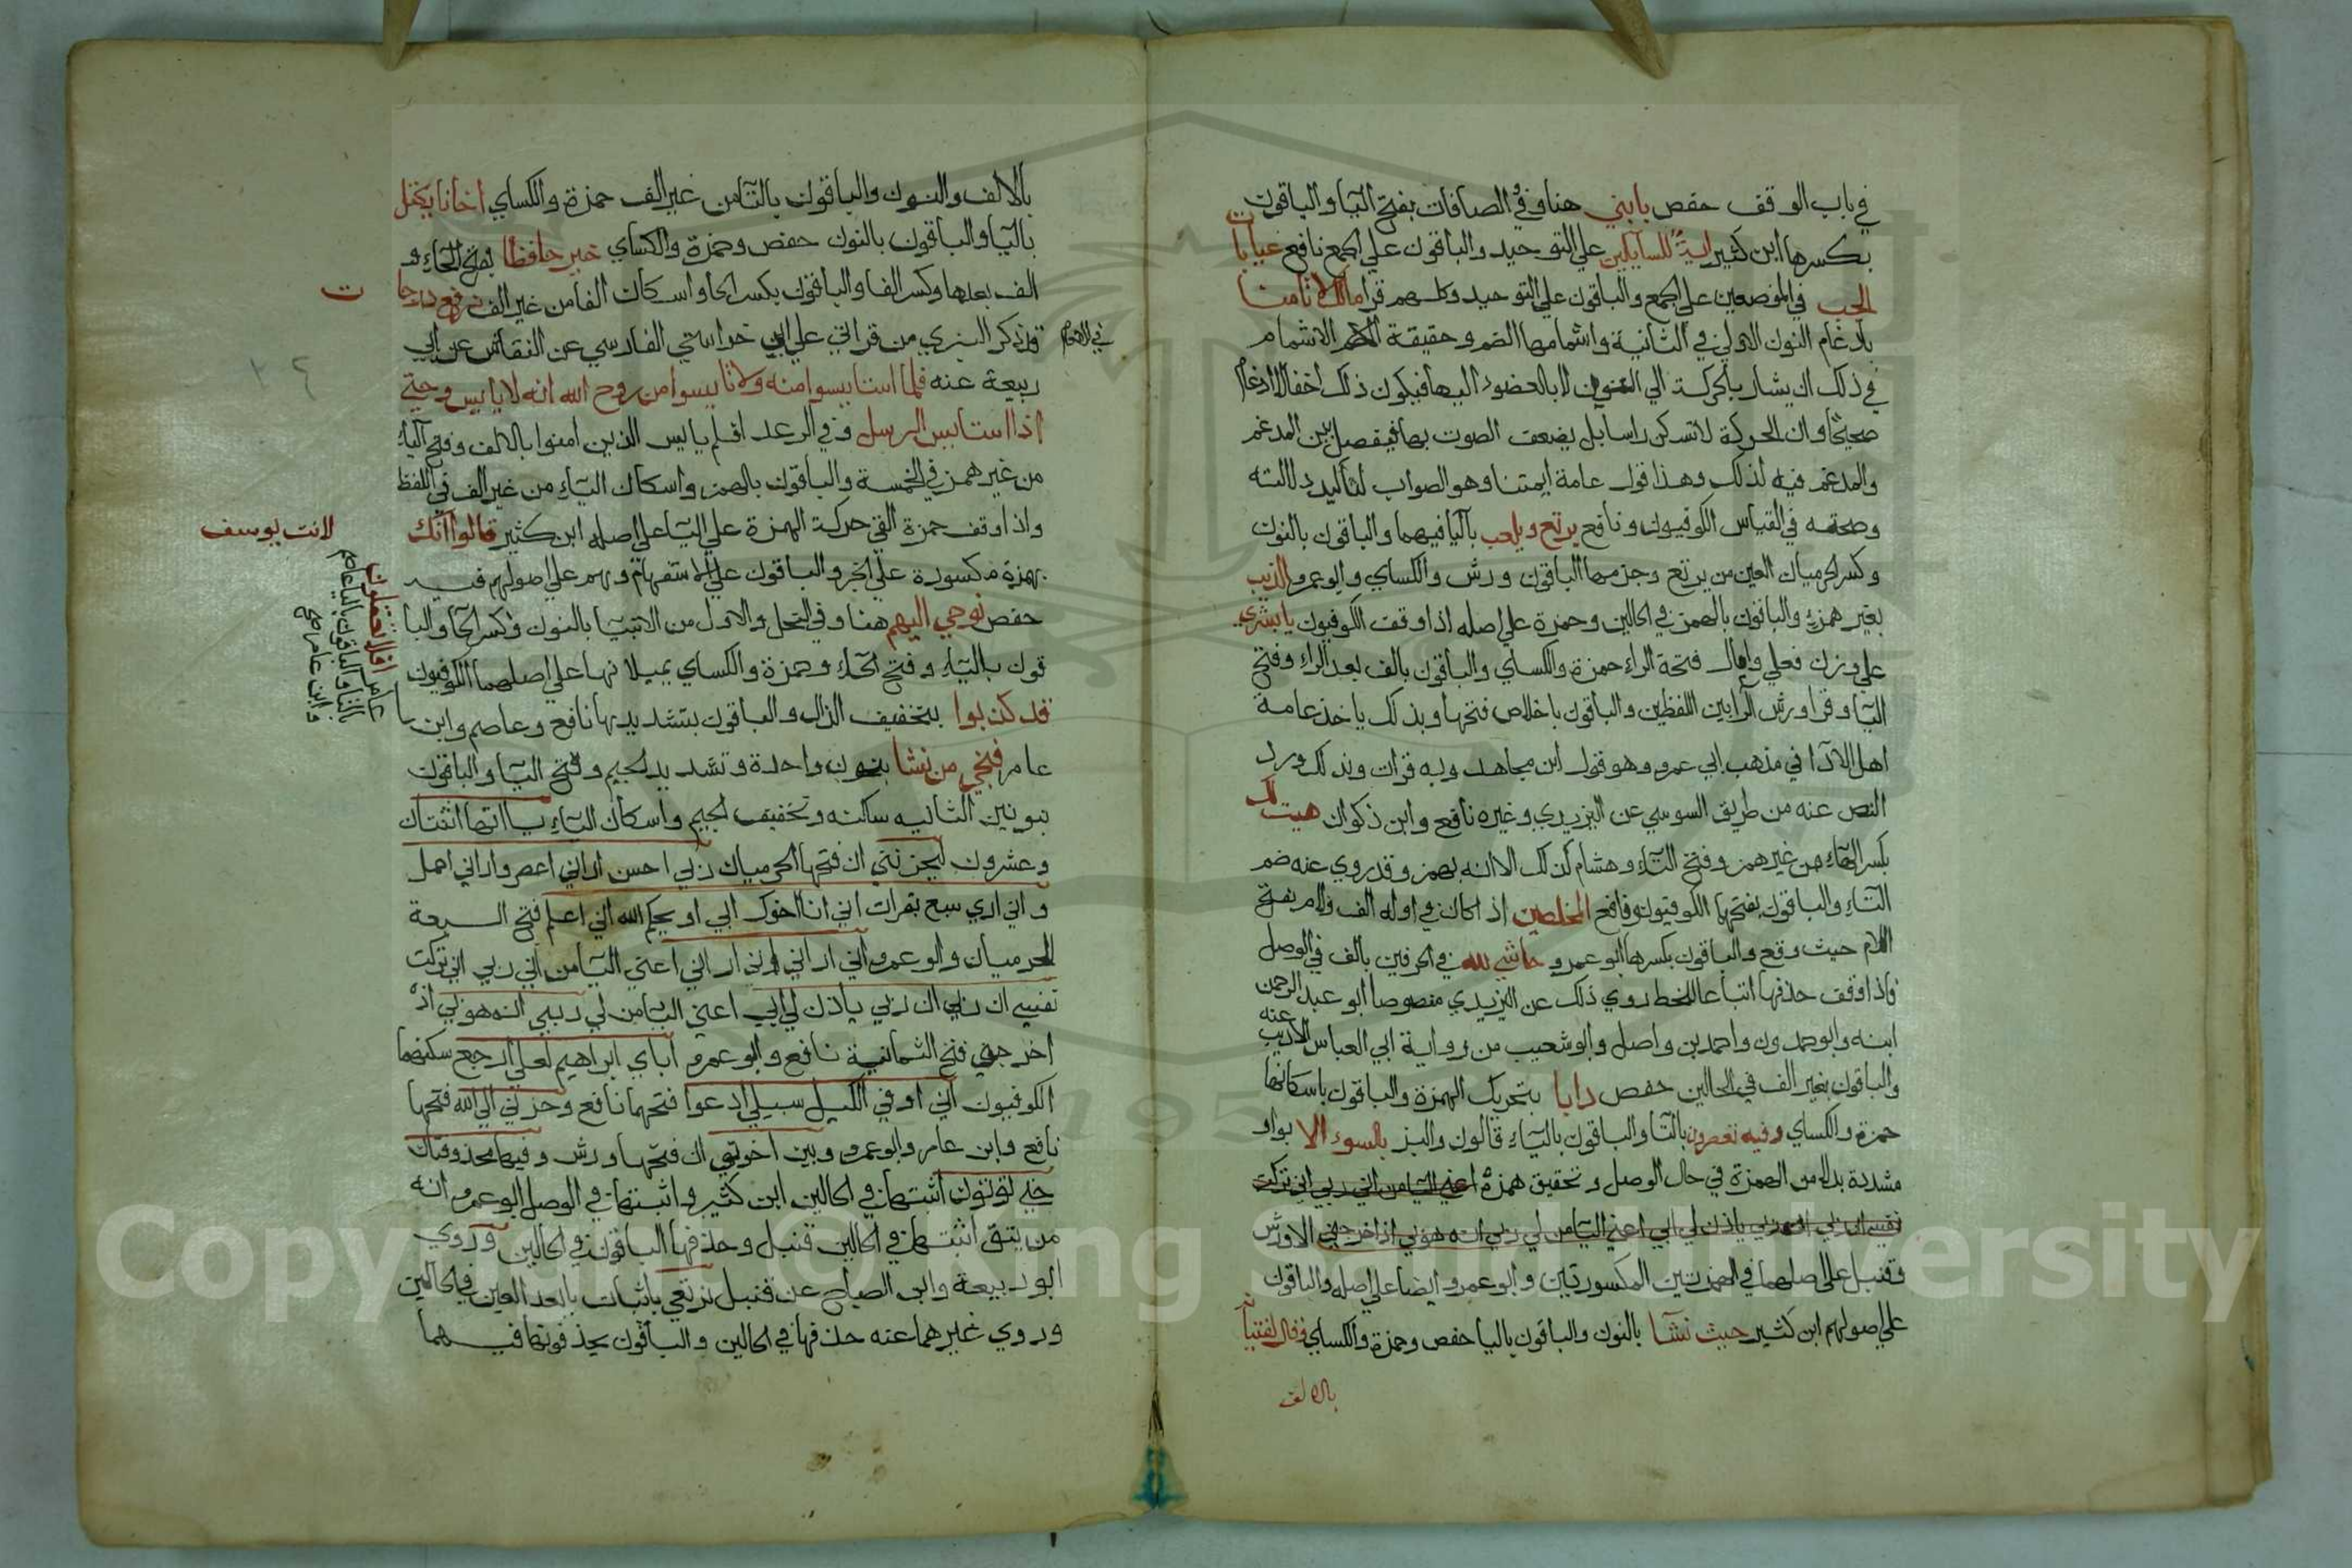 في باب الوقف حفص يا بني هنا وفي الصافات بفتح اليا والباقون
بكسرها ابن كثير اية للسايلين علي التوحيد والباقون علي الجمع نافع غيابات
الجب في الموضعين علي الجمع والباقون علي التوحيد وكلهم قرا مالك لا تامنا
بادغام النون الاولي في الثانية واشمامها الضم وحقيقة الاشمام
في ذلك ان يشار بالحركة الي النون لا بالعضو اليها فيكون ذلك اخفا لا ادغاما
صحيحا وان الحركة لا تسكن راسا بل يضعف الصوت بها فيفصل بين المدغم
والمدغم فيه لذلك وهذا قول عامة ايمتنا وهو الصواب لتاكيد دلالته
وصحته في القياس الكوفيون ونافع يرتع ويلعب باليا فيهما والباقون بالنون
وكسر الحرميان العين من يرتع وجزمها الباقون ورش والكساي وابو عمرو الذيب
بغير همز والباقون بالهمز في الحالين وحمزة علي اصله اذا وقف الكوفيون يا بشري
علي وزن فعلي وامال فتحة الراء حمزة والكساي والباقون بالف بعد الراء وفتح
اليا وقرا ورش الرا بين اللفظين والباقون باخلاص فتحها وبذلك ياخذ عامة
اهل الادا في مذهب ابي عمرو وهو قول ابن مجاهد وبه قرات وبذلك ورد
النص عنه من طريق السوسي عن اليزيدي وغيره نافع وابن ذكوان هيت لك
بكسر الهاء من غير همز وفتح التاء وهشام كذلك الا انه يهمز وقد روي عنه ضم
التاء والباقون بفتحها الكوفيون ونافع المخلصين اذا كان في اوله الف ولام بفتح
اللام حيث وقع والباقون بكسرها ابو عمرو حاشي لله في الحرفين بالف في الوصل
واذا وقف حذفها اتباعا للخط روي ذلك عن اليزيدي منصوصا ابو عبد الرحمن
ابنه وابو حمدون واحمد بن واصل وابو شعيب من رواية ابي العباس الاديب عنه
والباقون بغير الف في الحالين حفص دابا بتحريك الهمزة والباقون باسكانها
حمزة والكساي وفيه تعصرون بالتا والباقون بالياء قالون والبز بالسوء الا بواو
مشددة بدلا من الهمزة في حال الوصل وتحقيق همزة اعني اليا من اني ربي اني تركت
نفسي ان ربي ياذن لي ابي اعني اليا من لي ربي انه هو بي اذ اخرجني الا ورش
وقنبل علي اصلهما في الهمزتين المكسورتين وابو عمرو ايضا علي اصله والباقون
علي اصولهم ابن كثير حيث نشا بالنون والباقون باليا حفص وحمزة والكساي وقال لفتيانه
بالالف
بالالف والنون والباقون بالتا من غير الف حمزة والكساي اخانا يكتل
باليا والباقون بالنون حفص وحمزة والكساي خير حافظا بفتح الحاء و
الف بعدها وكسر الفا والباقون بكسر الحا واسكان الفا من غير الف نرفع درجات
قد ذكر البزي من قراتي علي ابن خواستي الفارسي عن النقاش عن ابي
ربيعة عنه فلما استايسوا منه ولا تايسوا من روح الله انه لا يايس وحتي
اذا استايس الرسل وفي الرعد افلم يايس الذين امنوا بالالف وفتح الياء
من غير همز في الخمسة والباقون بالهمز واسكان الياء من غير الف في اللفظ
واذا وقف حمزة القي حركة الهمزة علي اليا علي اصله ابن كثير قالوا انك
لانت يوسف
بهمزة مكسورة علي الخبر والباقون علي الاستفهام وهم علي اصولهم فيه
حفص نوحي اليهم هنا وفي النحل والاول من الانبيا بالنون وكسر الحا والبا
قون بالياء وفتح الحاء وحمزة والكساي يميلانها علي اصلهما الكوفيون
قد كذبوا بتخفيف الذال والباقون بتشديدها نافع وعاصم وابن
افلا تعقلون
عامر فنجي من نشا بنون واحدة وتشديد الجيم وفتح اليا والباقون
بنونين الثانيه ساكنه وتخفيف الجيم واسكان الياء ياءاتها اثنتان
وعشرون ليحزنني ان فتحها الحرميان ربي احسن اراني اعصر واراني احمل
و اني اري سبع بقرات اني انا اخوك ابي او يحكم الله اني اعلم فتح السبعة
الحرميان وابو عمرو اني اراني اعني اليا من اني ربي اني تركت
نفسي ان ربي ان ربي ياذن لي ابي اعني اليا من لي ربي انه هو بي اذ
اخرجني فتح الثمانية نافع وابو عمرو اباي ابراهيم لعلي ارجع سكنهما
الكوفيون اني اوفي الكيل سبيلي ادعوا فتحهما نافع وحزني الي الله فتحها
نافع وابن عامر وابو عمرو وبين اخوتي ان فتحها ورش وفيها محذوفتان
حتي توتون اثبتها في الحالين ابن كثير واثبتها في الوصل ابو عمرو انه
من يتق اثبتها في الحالين قنبل وحذفها الباقون في الحالين وروي
ابو ربيعة وابن الصباح عن قنبل نرتعي باثبات يا بعد العين في الحالين
وروي غيرهما عنه حذفها في الحالين والباقون يحذفونها فيهما